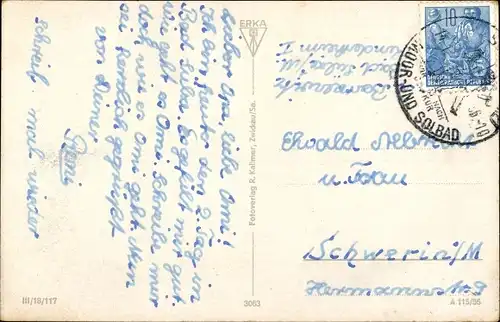 Lieber Opa, liebe Omi!
Ich bin heute den 2 Tag in
Bad Sulza. Es gefällt mir gut.
Wie geht es Omi? Schreibe mir
doch wie es Omi geht. Nun
sei herzlich gegrüßt
von Deiner
schreib mal wieder
ERKA
Fotoverlag R. Kallmer, Zwickau/Sa.
III/18/117
3063
A 115/55
Bad Sulza
10
MOOR UND SOLBAD
Ewald
u. Frau
Schwerin/M
Hermannstr. 9